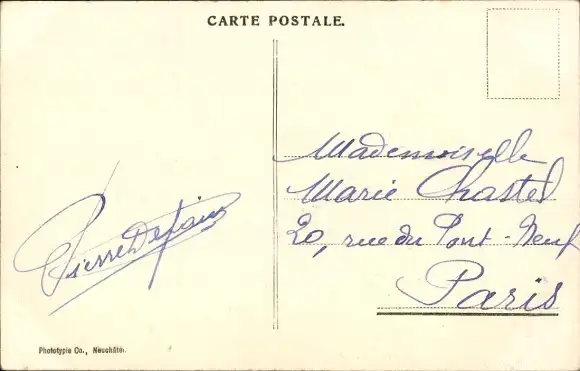 CARTE POSTALE.
Mademoiselle
Marie Chastel
20, rue du Pont-Neuf
Paris
Pierre
Phototypie Co., Neuchâtel